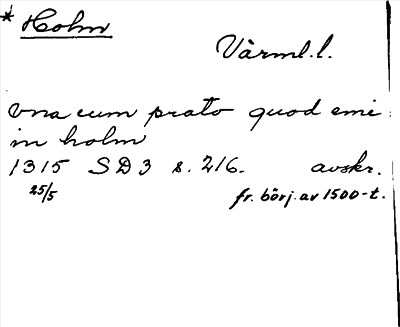 * Holm
Värml.l.
vna cum prato quod emi
in holm
1315 SD3 s. 216. avskr.
25/5 fr. börj. av 1500-t.